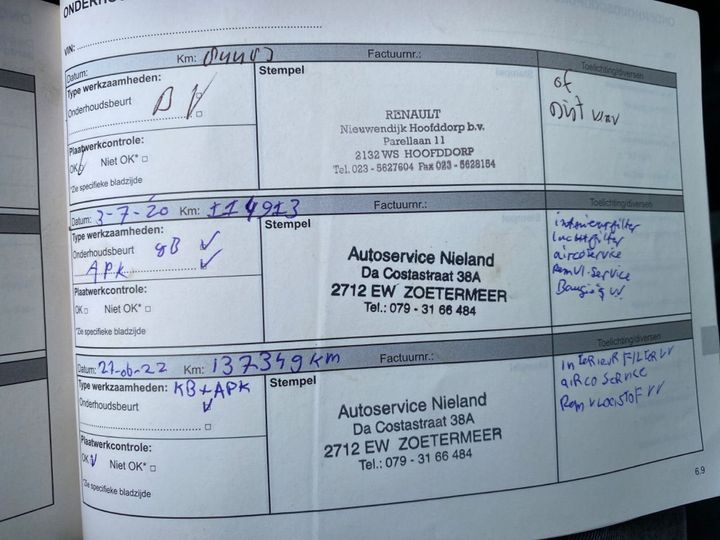 ONDERHOU
VIN:
Datum: Km: Factuurnr.:
Type werkzaamheden:
Onderhoudsbeurt B
Plaatwerkcontrole:
OK Niet OK*
*Zie specifieke bladzijde
Stempel
RENAULT
Nieuwendijk Hoofddorp b.v.
Parellaan 11
2132 WS HOOFDDORP
Tel. 023 - 5627604 Fax 023 - 5628154
Toelichting/diversen
Datum: 3-7-20 Km: 114913 Factuurnr.:
Type werkzaamheden:
Onderhoudsbeurt gB
APK
Plaatwerkcontrole:
OK Niet OK*
*Zie specifieke bladzijde
Stempel
Autoservice Nieland
Da Costastraat 38A
2712 EW ZOETERMEER
Tel.: 079 - 31 66 484
Toelichting/diversen
interieurfilter
luchtfilter
aircoservice
Remvl. service
Datum: 21-06-22 Km: 137349 km Factuurnr.:
Type werkzaamheden: KB+APK
Onderhoudsbeurt
Plaatwerkcontrole:
OK Niet OK*
*Zie specifieke bladzijde
Stempel
Autoservice Nieland
Da Costastraat 38A
2712 EW ZOETERMEER
Tel.: 079 - 31 66 484
Toelichting/diversen
INTERIEUR FILTER VV
AIRCO SERVICE
Rem VLOEISTOF VV
6.9